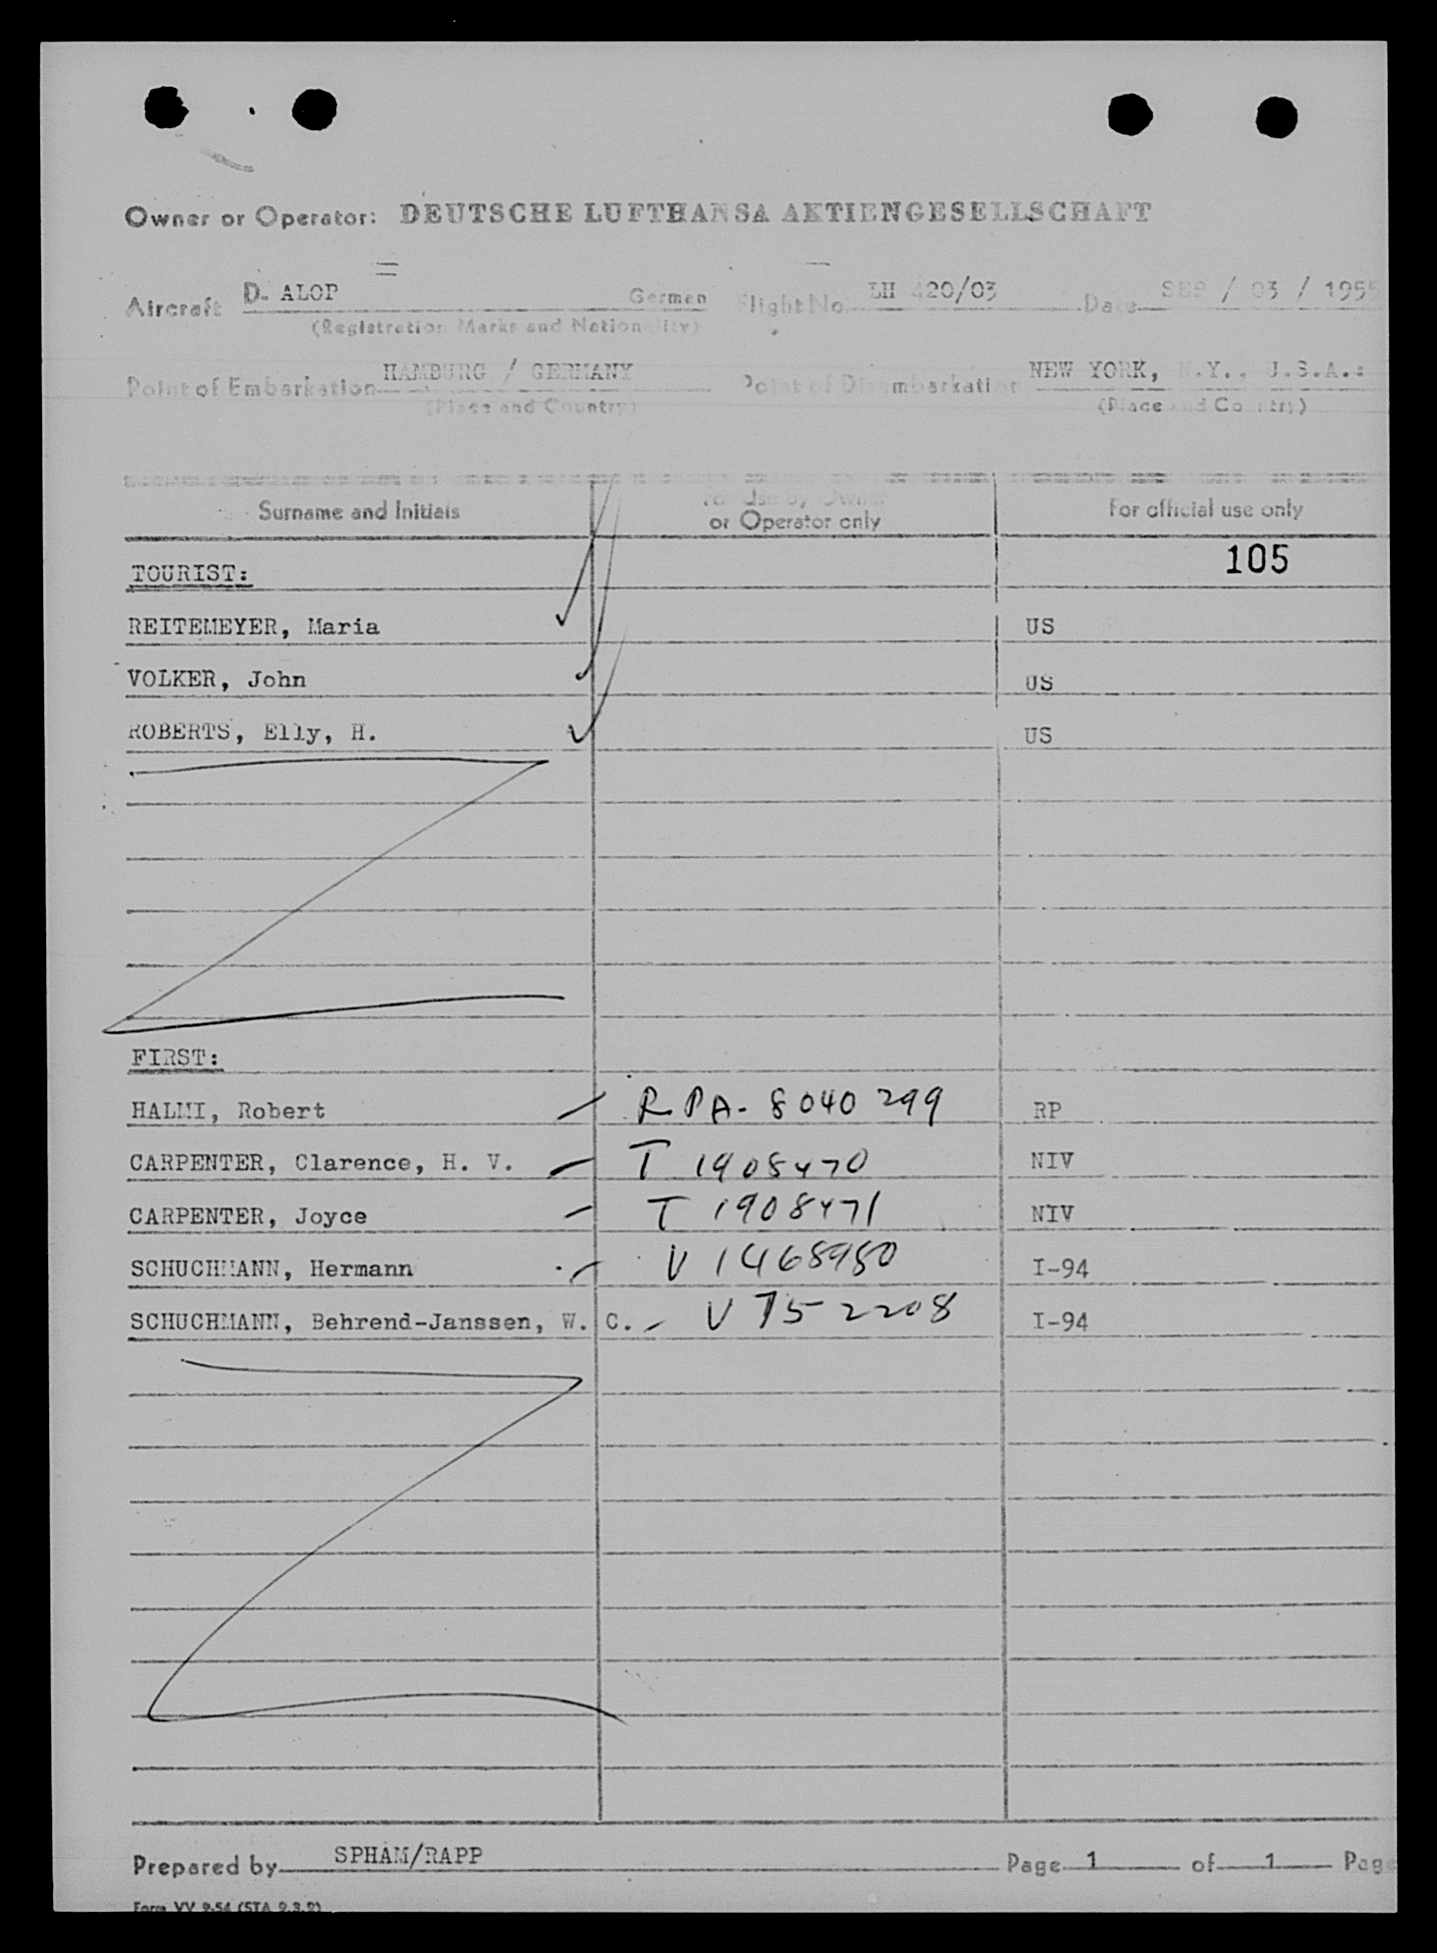 Owner or Operator: DEUTSCHE LUFTHANSA AKTIENGESELLSCHAFT
Aircraft D- ALOP German Flight No. LH 420/03 Date SEP / 03 / 1955
(Registration Marks and Nationality)
Point of Embarkation HAMBURG / GERMANY Point of Disembarkation NEW YORK, N.Y., U.S.A.:
(Place and Country) (Place and Country)
Surname and Initials For Use by Owner or Operator only For official use only
TOURIST: 105
REITEMEYER, Maria US
VOLKER, John US
ROBERTS, Elly, H. US
FIRST:
HALMI, Robert R.P.A- 8040299 RP
CARPENTER, Clarence, H. V. T 1908470 NIV
CARPENTER, Joyce T 1908471 NIV
SCHUCHMANN, Hermann V 1468980 I-94
SCHUCHMANN, Behrend-Janssen, W. C. V 752208 I-94
Prepared by SPHAM/RAPP Page 1 of 1 Page
Form VV 9-54 (STA 9.3.2)